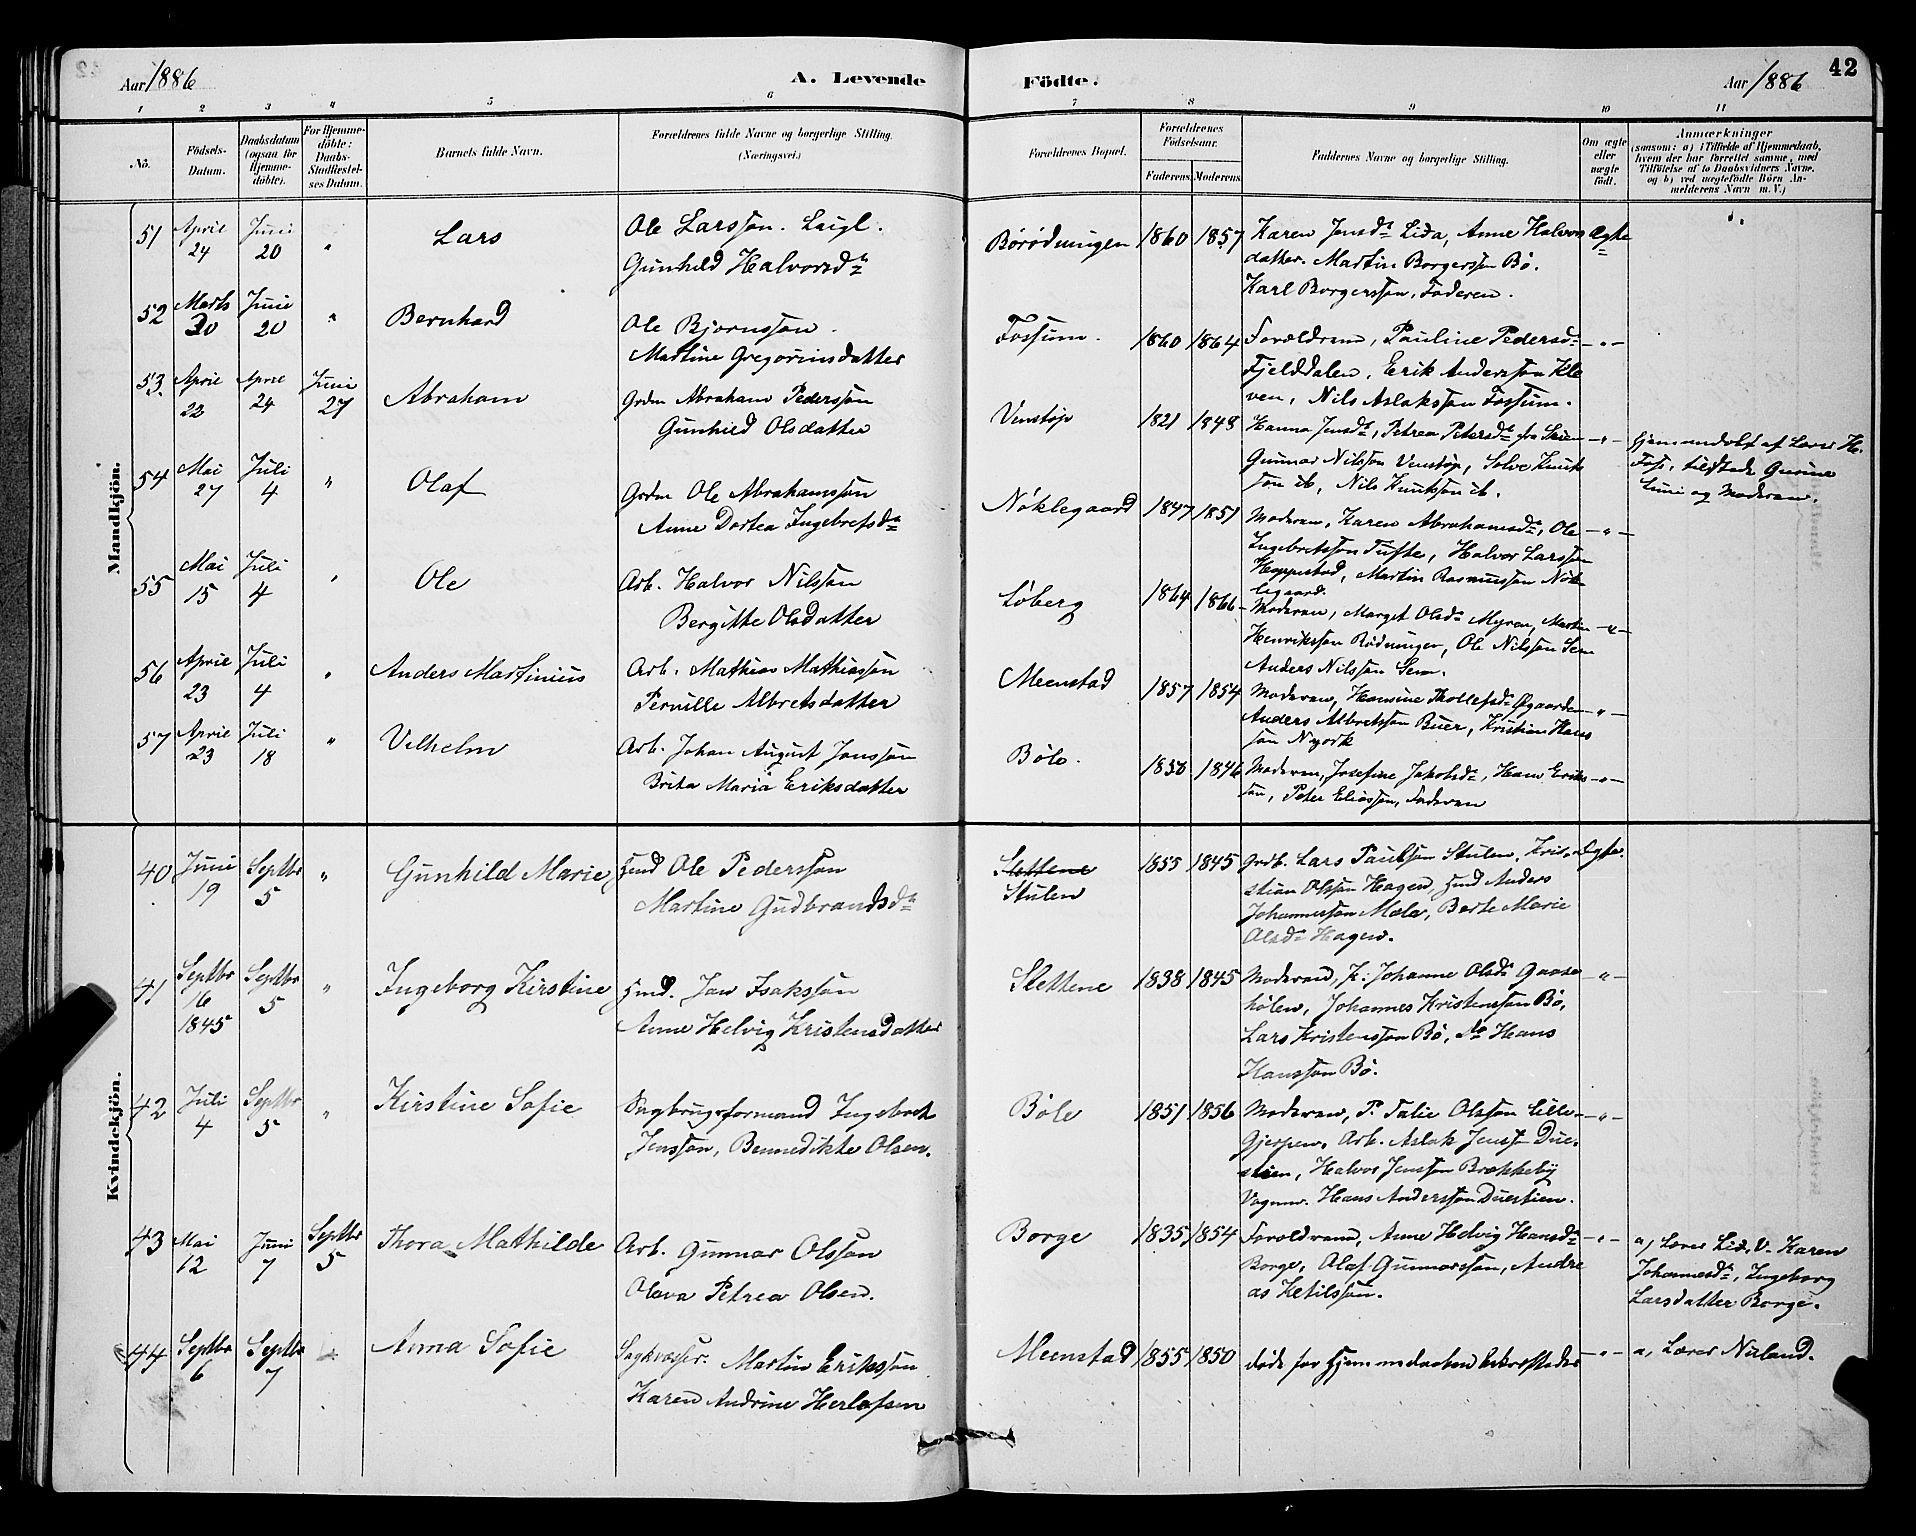 Aar 1886 A. Levende Födte. Aar 1886 42
1 2 3 4 5 6 7 8 9 10 11
No. Födsels-Datum. Daabsdatum (ogsaa for Hjemmedöbte). For Hjemmedöbte: Daabs-Stadfæstelses Datum. Barnets fulde Navn. Forældrenes fulde Navne og borgerlige Stilling. (Næringsvei.) Forældrenes Bopæl. Forældrenes Födselsaar. Faderens. Moderens. Faddernes Navne og borgerlige Stilling. Om ægte eller uægte födt. Anmærkninger (saasom: a) i Tilfælde af Hjemmedaab, hvem der har forrettet samme, med Tilföielse af to Daabsvidners Navne, og b) ved uægtefödte Börn Anmelderens Navn m. V.)
Mandkjön.
51 April 24 Juni 20 " Lars
Ole Larsson. Leigl.
Gunhild Halvorsd.
Börödningen 1860 1857
Karen Jensd. Lida, Anne Halvors Ægte
datter. Martin Borgersson Bö.
Karl Borgersson, Faderen.
52 Marts 30 Juni 20 " Bernhard
Ole Bjornsson.
Martine Gregoriusdatter
Fossum. 1860 1864
Forældrene, Pauline Pedersd. - " -
Fjelddalen, Erik Andersson Kle
ven, Nils Aslaksson Fossum.
53. April 22 April 24 Juni 27 Abraham
Grdm Abraham Pedersson
Gunhild Olsdatter
Venstøp 1821 1848
Hanna Jensd., Petrea Petersd. fra Skien - " -
Gunnar Nilsson Venstøp, Solve Knut
sson ib, Nils Knutsson ib.
Hjemmedøbt af Lærer
tilstede Gurine
og Moderen.
54 Mai 27 Juli 4 " Olaf
Grdm Ole Abrahamsson
Anne Dortea Ingebretsd.
Nöklegaard 1847 1851
Moderen, Karen Abrahamsd., Ole - " -
Ingebretsson Tufte, Halvor Larsson
Hoppestad, Martin Rasmusson Nök
legaard.
55 Mai 15 Juli 4 " Ole
Arb. Halvor Nilsson
Bergitte Olsdatter
Löberg 1864 1866
Moderen, Marget Olsd. Myren, Martin - " -
Henriksson Rödningen, Ole Nilsson Sem
Anders Nilsson Sem.
56 April 23 Juli 4 " Anders Martinius
Arb. Mathias Mathiasson
Pernille Albretsdatter
Meenstad 1857 1854
Moderen, Hansine Thollefsd. Øgaarden - " -
Anders Albretsson Buer, Kristian Hans
son
57 April 23 Juli 18 " Vilhelm
Arb. Johan August Jonsson
Brita Maria Eriksdatter
Böle. 1858 1846
Moderen, Josefine Jakobsd., Hans Eriks - " -
son, Peter Eliasson, Faderen
Kvindekjön.
40 Juni 19 Septbr 5 " Gunhild Marie
Hmd Ole Pedersson
Martine Gudbrandsd.
Slettene
Stulen 1855 1845
Grdb. Lars Paulsson Stulen, Kris- Ægte.
stian Olsson Hagen, Hmd Anders
Johannesson Mæla, Berte Marie
Olsd. Hagen.
41 Septbr 16 1845 Septbr 5 " Ingeborg Kirstine
Hmd. Jan Isaksson
Anne Helvig Kristensdatter
Slettene 1838 1845
Moderen, K. Johanne Olsd. Gaase - " -
hölen, Johannes Kristensson Bö,
Lars Kristensson Bö, Hans
Hansson Bö.
42 Juli 4 Septbr 5 " Kirstine Sofie
Sagbrugsformand Ingebret
Jensson, Bennedikte Olsen.
Böle 1851 1856
Moderen, P. Talie Olsson Lille- - " -
Gjerpen, Arb. Aslak Jenss. Due-
stien, Halvor Jensson Brækkeby
Vognm. Hans Andersson Duestien.
43 Mai 12 Juni 7 Septbr 5 Thora Mathilde
Arb. Gunnar Olsson
Olava Petrea Olsen.
Borge 1835 1854
Forældrene, Anne Helvig Hansd. - " -
Borge, Olaf Gunnarsson, Andre
as Ketilsson.
a, Lærer Lid, V. Karen
Johannesd., Ingeborg
Larsdatter Borge.
44 Septbr 6 Septbr 7 Anna Sofie
Martin Eriksson
Karen Andrine Herlofsen
Meenstad 1855 1850
døde før Hjemmedaaben bekræftedes - " -
a, Lærer Nuland.